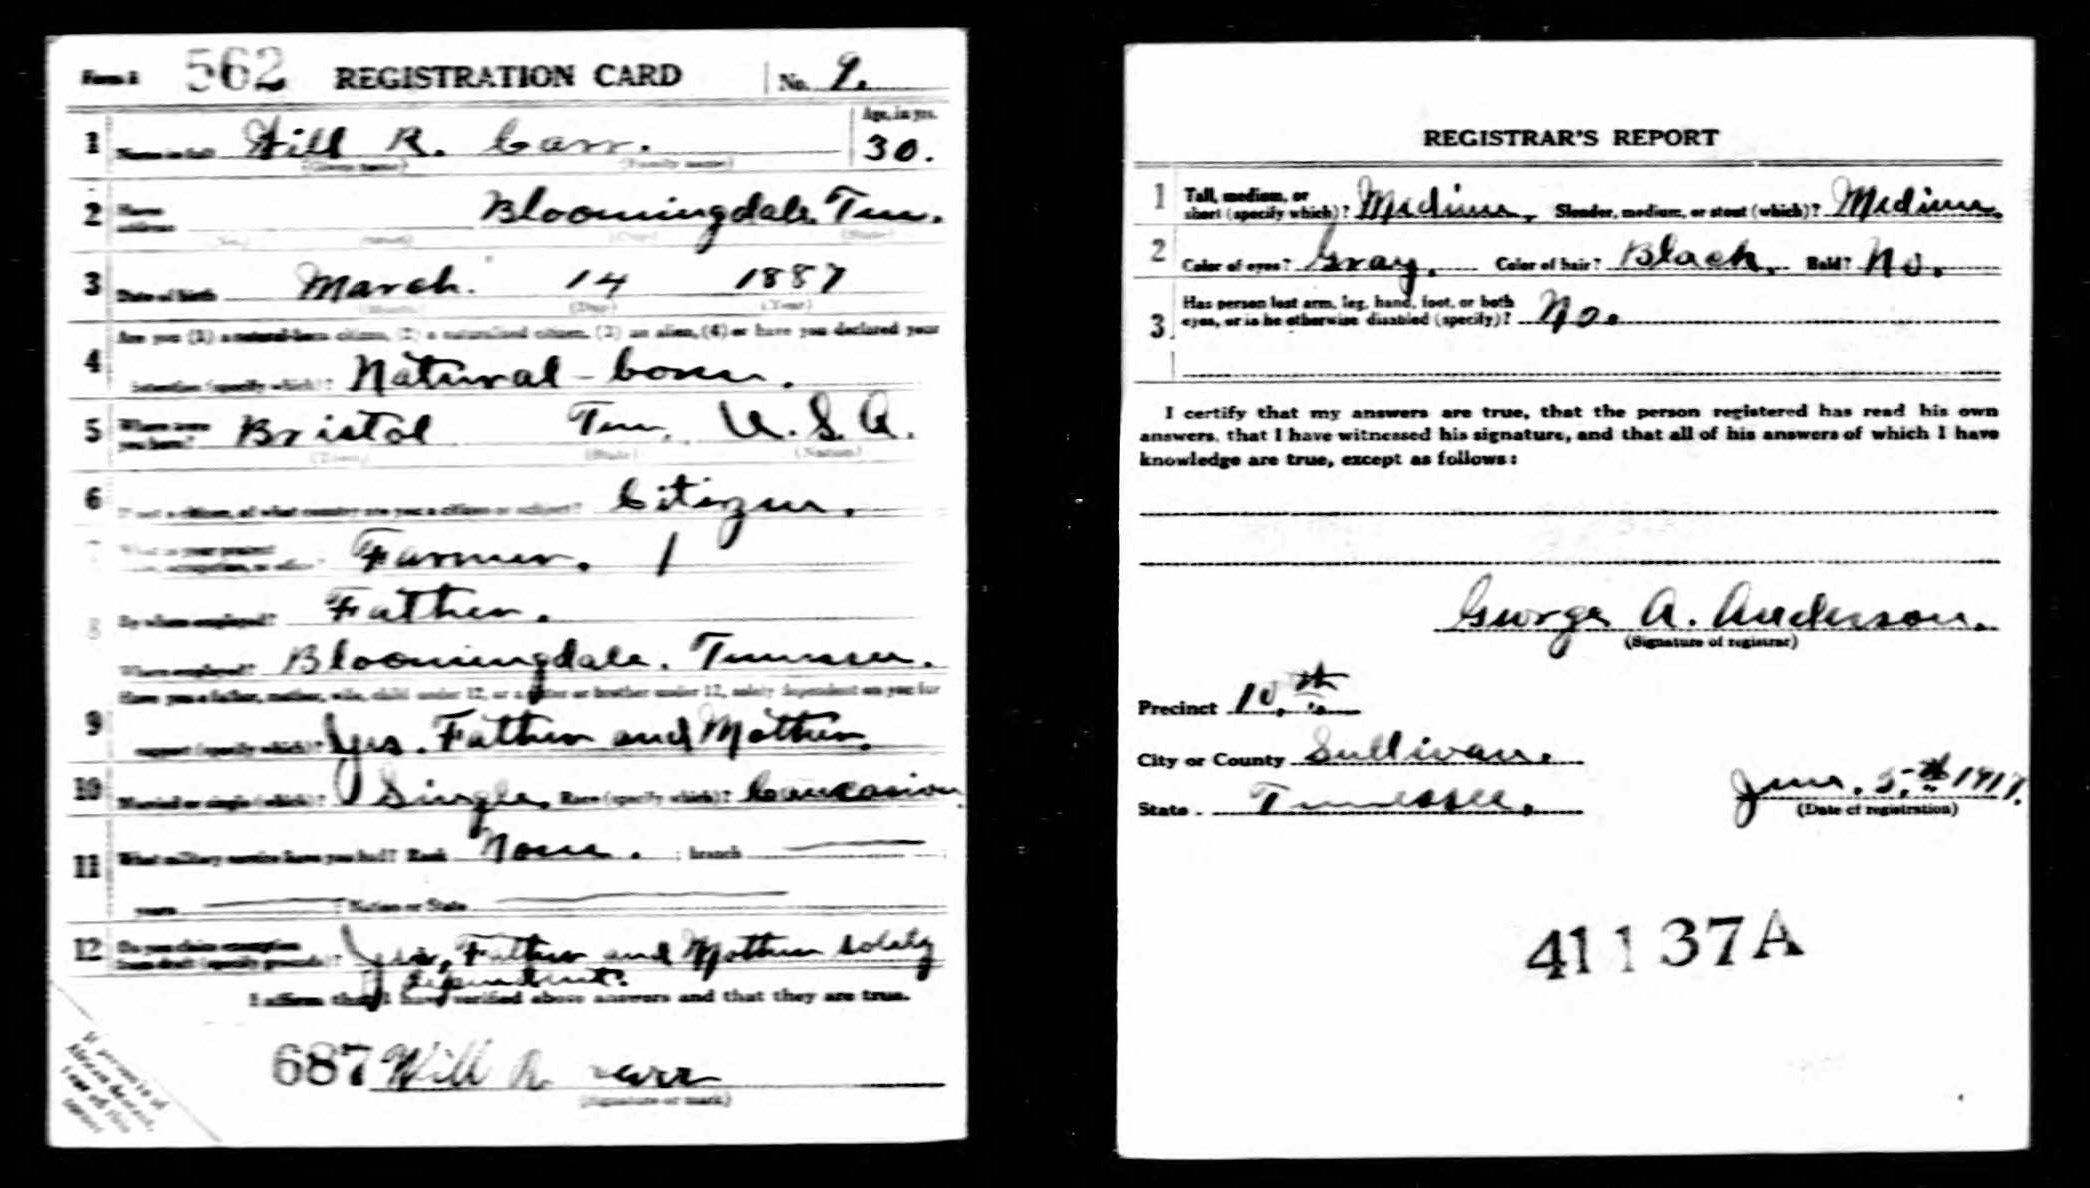 Form 1 562 REGISTRATION CARD No. 9.
1 Name in full Will R. Carr. Age, in yrs. 30.
(Given name) (Family name)
2 Home address Bloomingdale, Tenn.
(No.) (Street) (City) (State)
3 Date of birth March. 14 1887
(Month) (Day) (Year)
4 Are you (1) a natural-born citizen, (2) a naturalized citizen, (3) an alien, (4) or have you declared your
intention (specify which)? Natural-born.
5 Where were you born? Bristol Tenn. U.S.A.
(Town) (State) (Nation)
6 If not a citizen, of what country are you a citizen or subject? Citizen.
7 What is your present trade, occupation, or office? Farmer. 1
8 By whom employed? Father.
Where employed? Bloomingdale. Tennessee.
9 Have you a father, mother, wife, child under 12, or a sister or brother under 12, solely dependent on you for
support (specify which)? Yes. Father and Mother.
10 Married or single (which)? Single, Race (specify which)? Caucasion
11 What military service have you had? Rank None. ; branch
years ; Nation or State
12 Do you claim exemption from draft (specify grounds)? Yes, Father and Mother solely
dependent.
I affirm that I have verified above answers and that they are true.
687 Will R Carr
(Signature or mark)
If person is of
African descent,
tear off this
corner
REGISTRAR'S REPORT
1 Tall, medium, or short (specify which)? Medium. Slender, medium, or stout (which)? Medium.
2 Color of eyes? Gray. Color of hair? Black. Bald? No.
3 Has person lost arm, leg, hand, foot, or both
eyes, or is he otherwise disabled (specify)? No.
I certify that my answers are true, that the person registered has read his own
answers, that I have witnessed his signature, and that all of his answers of which I have
knowledge are true, except as follows:
George A. Anderson.
(Signature of registrar)
Precinct 10.th
City or County Sullivan.
State Tennessee. June. 5.th 1917.
(Date of registration)
41137A